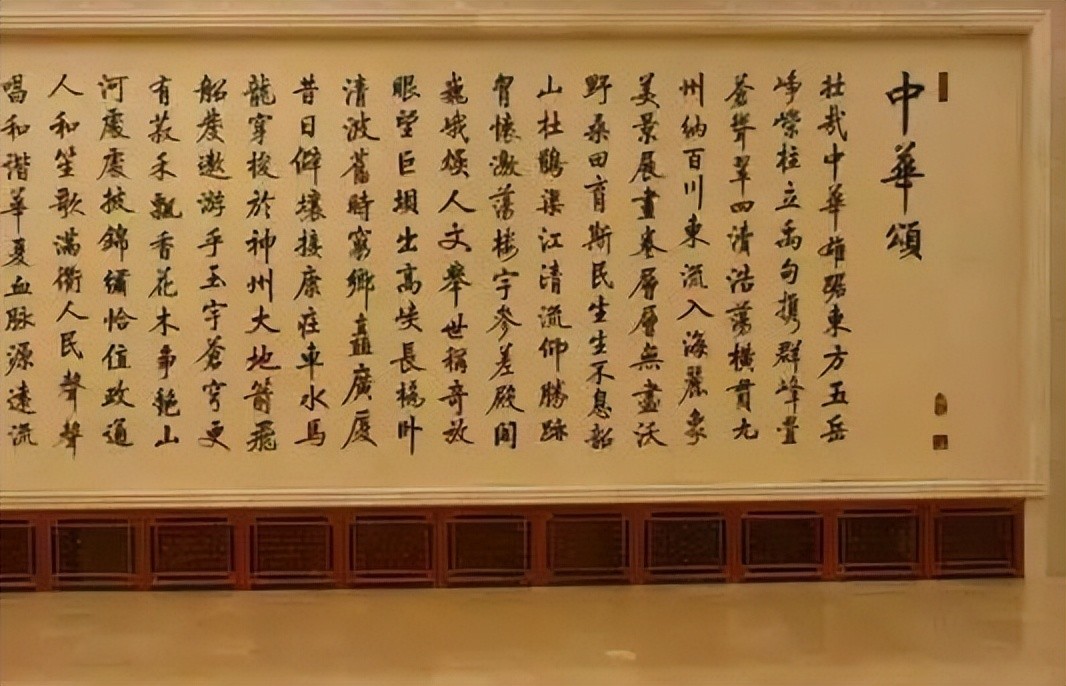 中華頌
壮哉中華雄踞東方五岳
峥嶸柱立禹甸攜群峰疊
蒼聳翠四瀆浩蕩橫貫九
州納百川東流入海麗象
美景展畫卷層層無盡沃
野桑田育斯民生生不息韶
山杜鵑渠江清流仰勝跡
胷懷激蕩樓宇參差殿閣
巍峨燦人文舉世稱奇放
眼望巨壩出高峽長橋卧
清波舊時窮鄉矗廣廈
昔日僻壤接康莊車水馬
龍穿梭於神州大地箭飛
船發遨游乎玉宇蒼穹更
有菽禾飄香花木爭艷山
河處處披錦繡恰值政通
人和笙歌滿衢人民聲聲
唱和諧華夏血脉源遠流